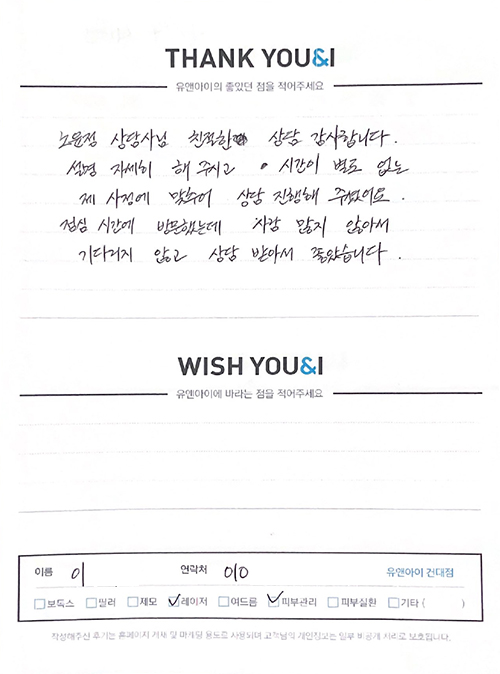 THANK YOU&I
유앤아이의 좋았던 점을 적어주세요
노윤정 상담사님 친절한 상담 감사합니다.
설명 자세히 해 주시고 시간이 별로 없는
제 사정에 맞추어 상담 진행해 주셨어요.
점심 시간에 방문했는데 사람 많지 않아서
기다리지 않고 상담 받아서 좋았습니다.
WISH YOU&I
유앤아이에 바라는 점을 적어주세요
이름 이 연락처 010 유앤아이 건대점
보톡스 필러 제모 레이저 여드름 피부관리 피부질환 기타 ( )
작성해주신 후기는 홈페이지 게재 및 마케팅 용도로 사용되며 고객님의 개인정보는 일부 비공개 처리로 보호됩니다.